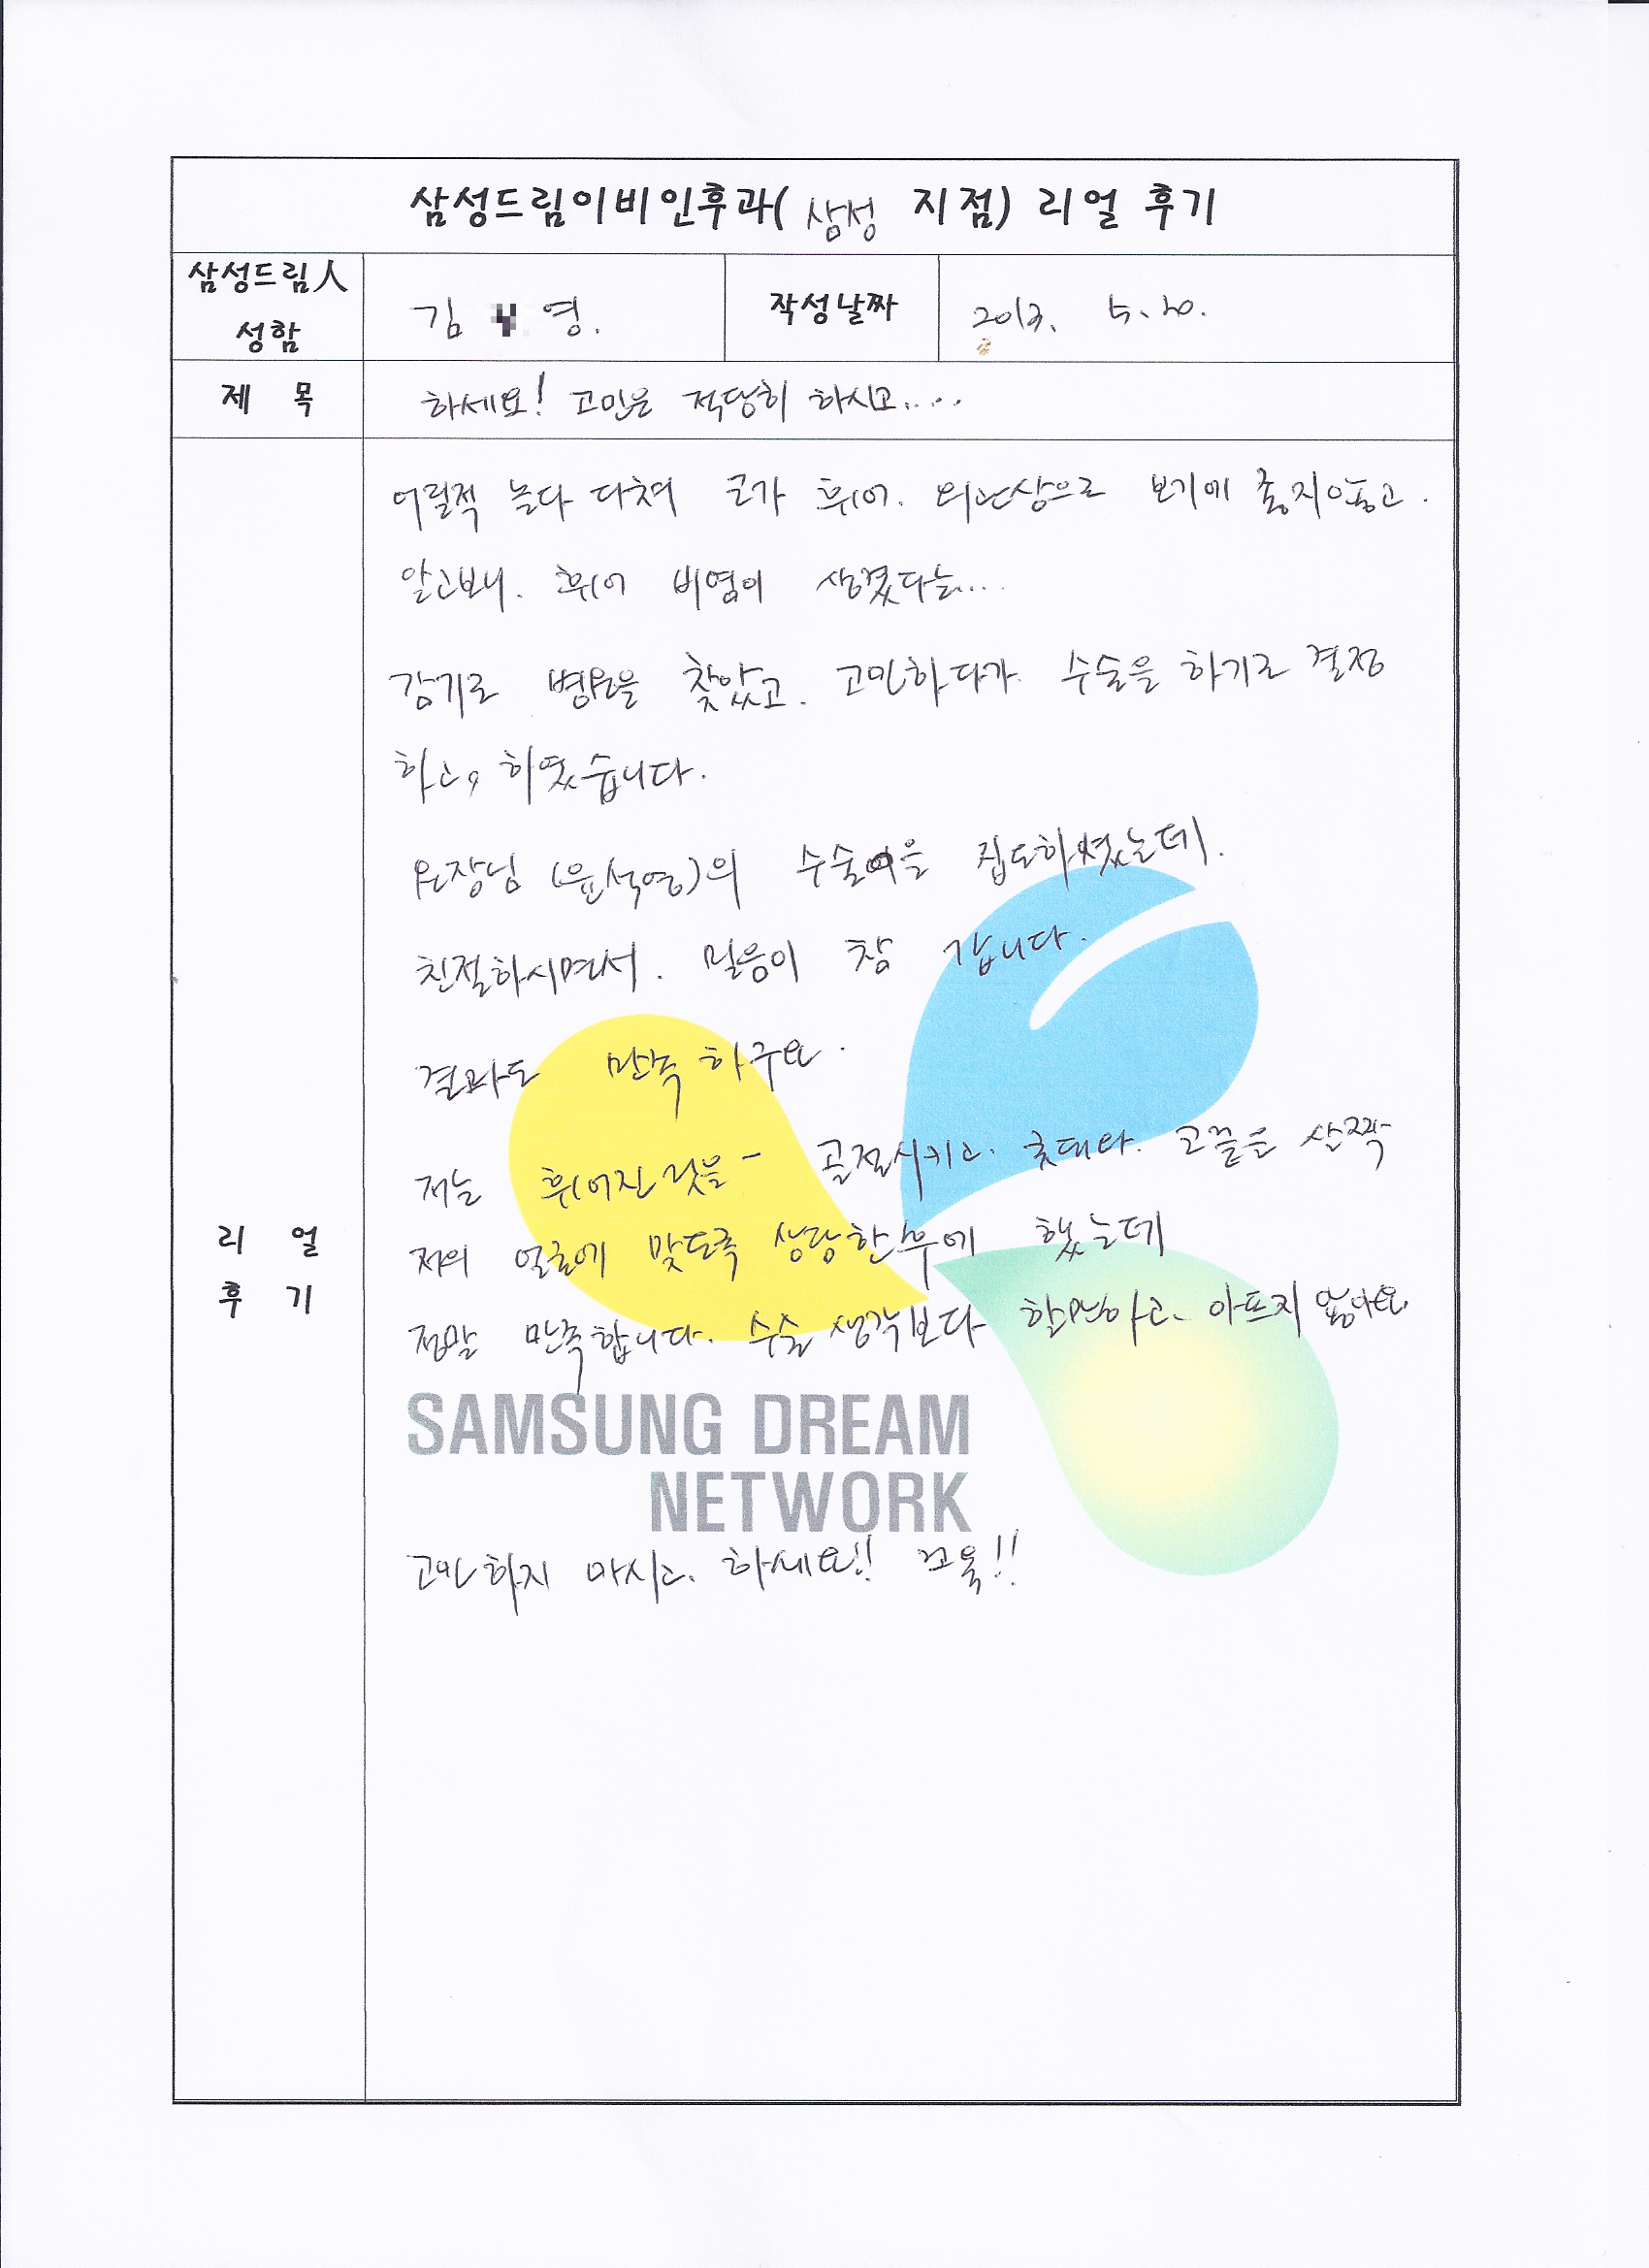 삼성드림이비인후과( 삼성 지점) 리얼 후기
삼성드림人
성함
김 영.
작성날짜
2013. 5. 20.
제 목
하세요! 고민은 적당히 하시고....
어릴적 놀다 다쳐 코가 휘어. 외관상으로 보기에 좋지않고.
알고보니. 휘어 비염이 생겼다는....
감기로 병원을 찾았고. 고민하다가 수술을 하기로 결정
하고, 하였습니다.
원장님 (윤석영)의 수술을 집도하셨는데.
친절하시면서. 믿음이 참 갑니다.
결과도 만족 하구요.
저는 휘어진것을 - 골절시키고. 콧대와. 코끝은 살짝
저의 얼굴에 맞도록 상담한 후에 했는데
정말 만족합니다. 수술 생각보다 할만하고. 아프지 않아요.
SAMSUNG DREAM
NETWORK
고민하지 마시고. 하세요!! 꼬옥!!
리 얼
후 기